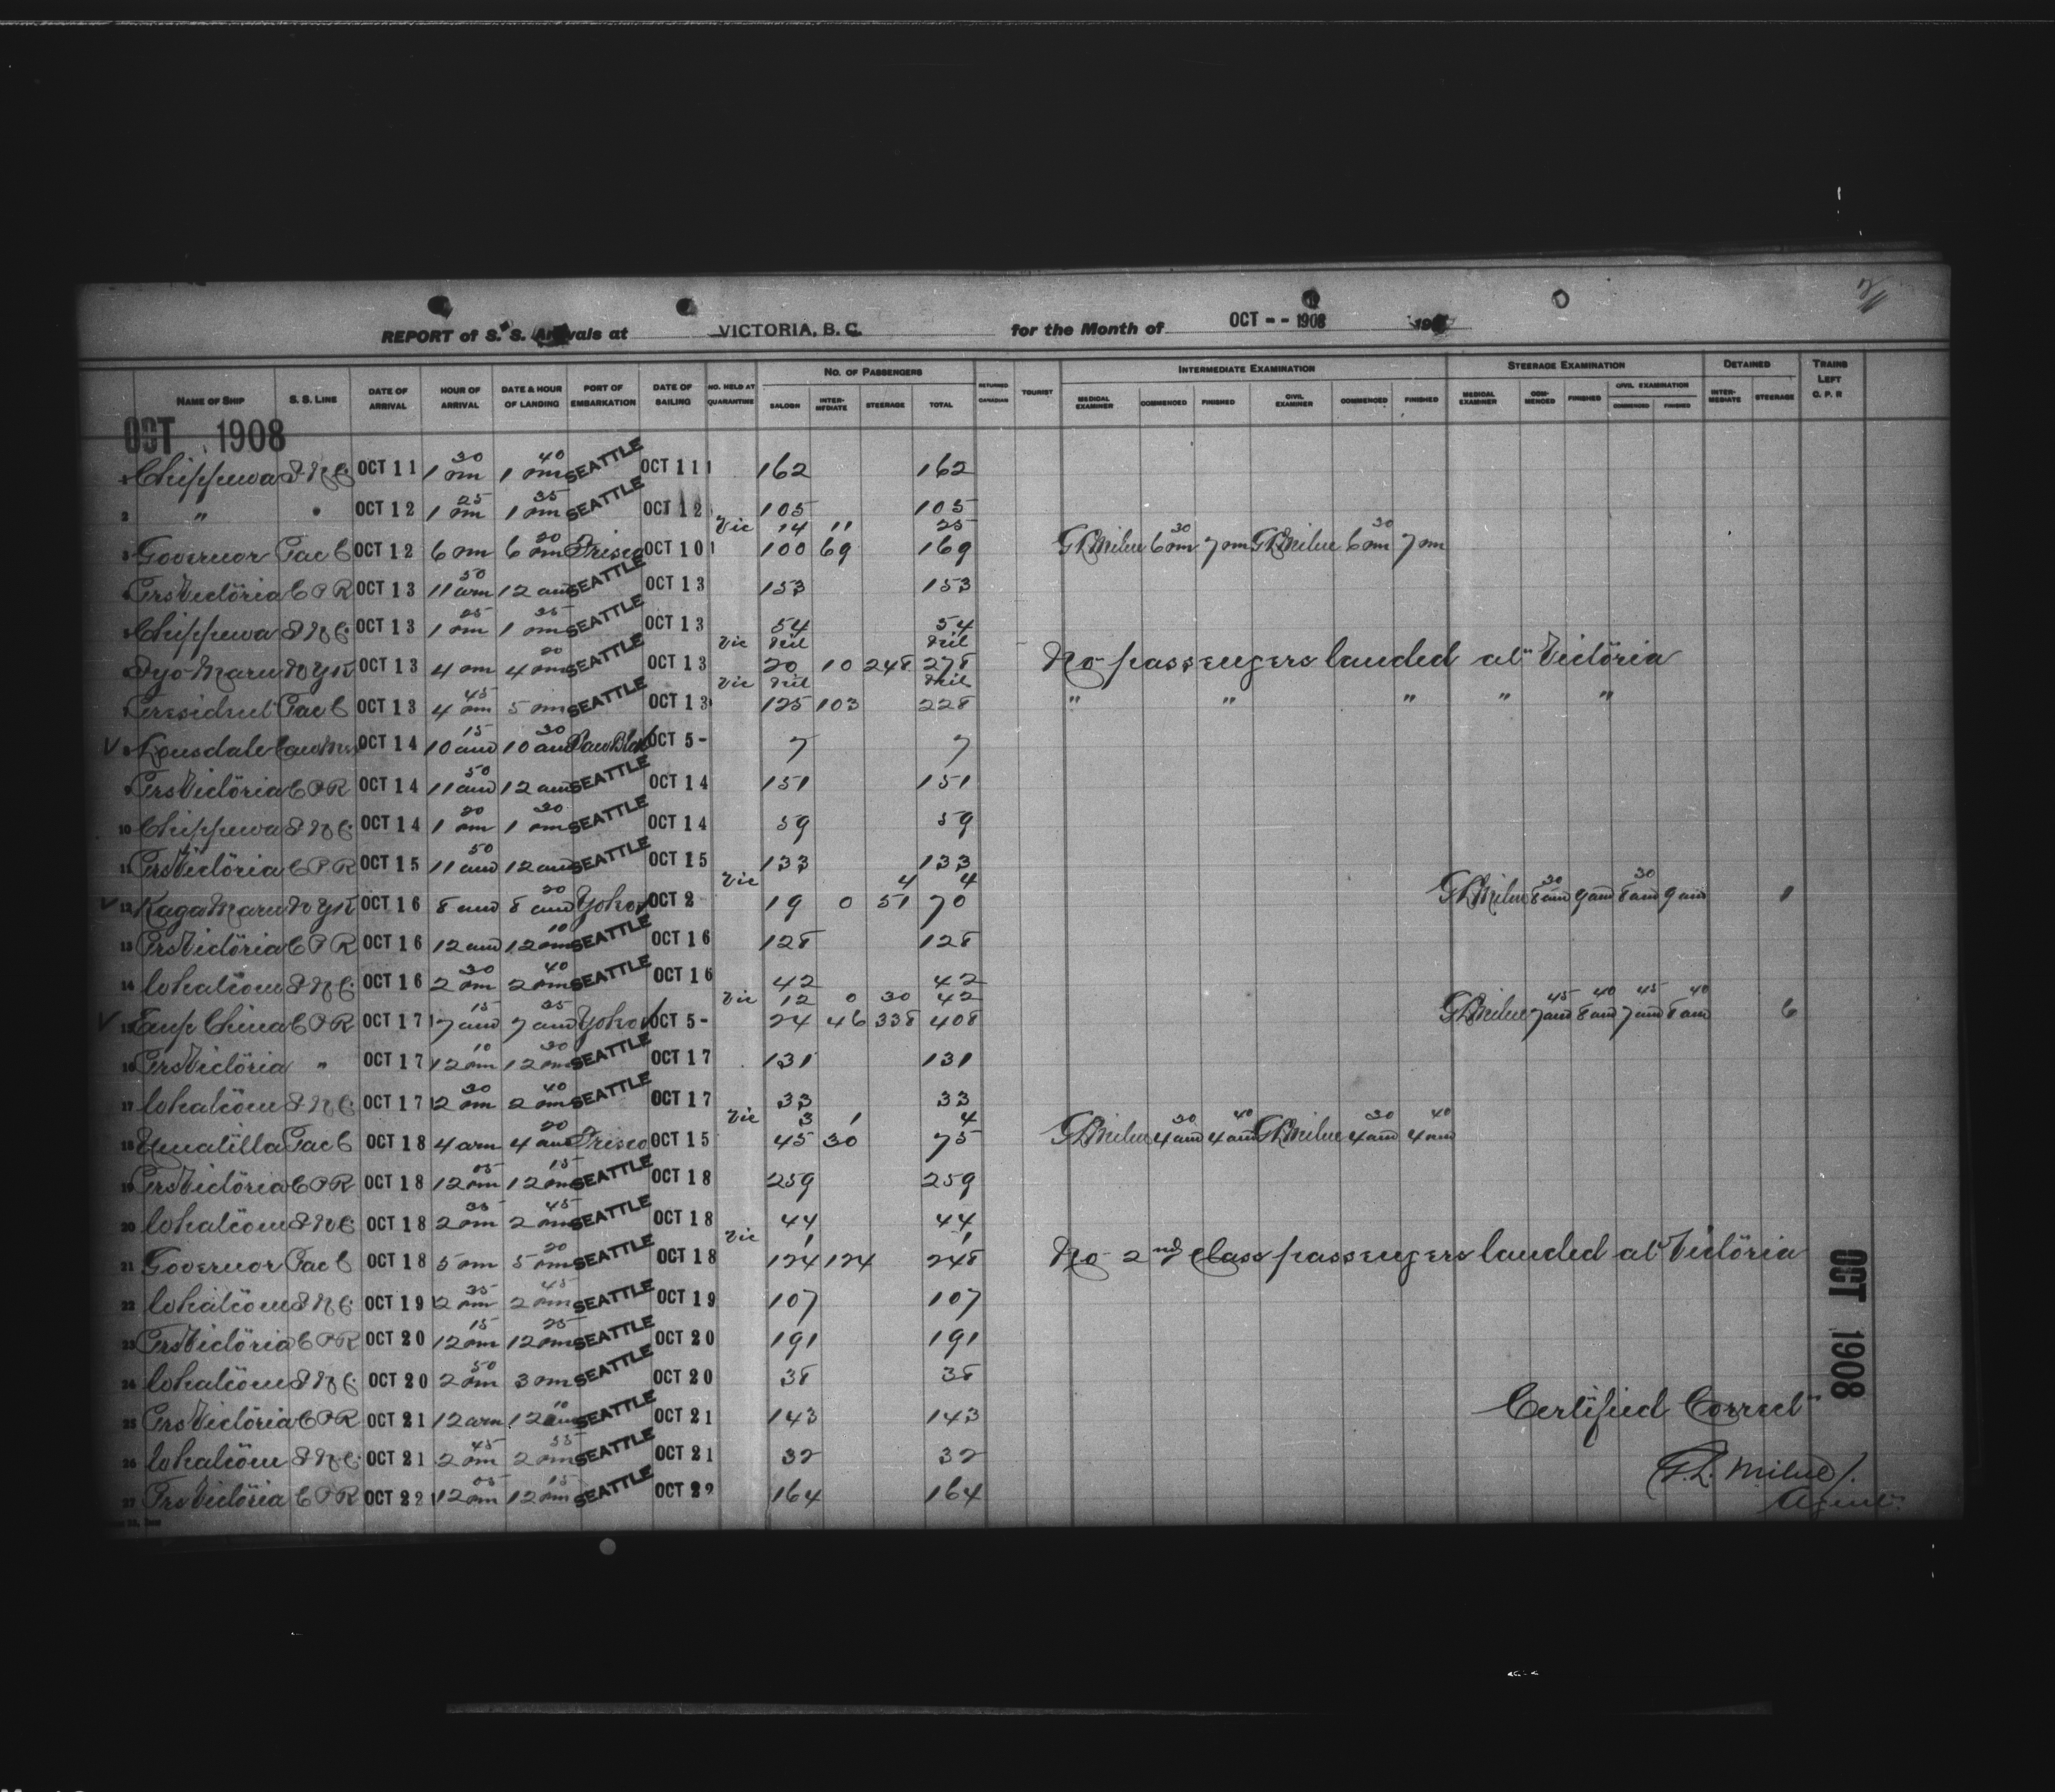 REPORT of S. S. Arrivals at VICTORIA, B. C. for the Month of OCT -- 1908 190
NAME OF SHIP S. S. LINE DATE OF ARRIVAL HOUR OF ARRIVAL DATE & HOUR OF LANDING PORT OF EMBARKATION DATE OF SAILING NO. HELD AT QUARANTINE NO. OF PASSENGERS SALOON INTER-MEDIATE STEERAGE TOTAL RETURNED CANADIAN TOURIST INTERMEDIATE EXAMINATION MEDICAL EXAMINER COMMENCED FINISHED CIVIL EXAMINER COMMENCED FINISHED STEERAGE EXAMINATION MEDICAL EXAMINER COM-MENCED FINISHED CIVIL EXAMINATION COMMENCED FINISHED DETAINED INTER-MEDIATE STEERAGE TRAINS LEFT C. P. R
OCT 1908
1 Chippewa I N C OCT 11 1 30 pm 1 40 pm SEATTLE OCT 11 162 162
2 " " OCT 12 1 25 pm 1 35 pm SEATTLE OCT 12 105 105
Vic 14 11 25
3 Governor Pac C OCT 12 6 pm 6 20 pm Frisco OCT 10 100 69 169 G L Milne 6 30 pm 7 pm G L Milne 6 30 pm 7 pm
4 Prs Victoria C P R OCT 13 11 50 am 12 am SEATTLE OCT 13 153 153
5 Chippewa I N C OCT 13 1 25 pm 1 35 pm SEATTLE OCT 13 54 54
Vic Nil Nil
6 Iyo Maru N Y K OCT 13 4 pm 4 20 pm SEATTLE OCT 13 20 10 248 278 No passengers landed at Victoria
Vic Nil Nil
7 President Pac C OCT 13 4 45 pm 5 pm SEATTLE OCT 13 125 103 228 " " " " "
8 Lonsdale OCT 14 10 15 am 10 30 am OCT 5 - 7 7
9 Prs Victoria C P R OCT 14 11 50 am 12 am SEATTLE OCT 14 151 151
10 Chippewa I N C OCT 14 1 20 pm 1 30 pm SEATTLE OCT 14 59 59
11 Prs Victoria C P R OCT 15 11 50 am 12 am SEATTLE OCT 15 133 133
Vic 4 4
12 Kaga Maru N Y K OCT 16 8 am 8 20 am Yoko OCT 2 19 0 51 70 G L Milne 8 30 am 9 am 8 30 am 9 am 1
13 Prs Victoria C P R OCT 16 12 am 12 10 pm SEATTLE OCT 16 128 128
14 Whatcom I N C OCT 16 2 30 pm 2 40 pm SEATTLE OCT 16 42 42
Vic 12 0 30 42
15 Emp China C P R OCT 17 7 15 am 7 35 am Yoko OCT 5 - 24 46 338 408 G L Milne 7 45 am 8 40 am 7 45 am 8 40 am 6
16 Prs Victoria " OCT 17 12 10 pm 12 20 pm SEATTLE OCT 17 131 131
17 Whatcom I N C OCT 17 2 30 pm 2 40 pm SEATTLE OCT 17 33 33
Vic 3 1 4
18 Umatilla Pac C OCT 18 4 am 4 20 am Frisco OCT 15 45 30 75 G L Milne 4 30 am 4 40 am G L Milne 4 30 am 4 40 am
19 Prs Victoria C P R OCT 18 12 05 pm 12 15 pm SEATTLE OCT 18 259 259
20 Whatcom I N C OCT 18 2 35 pm 2 45 pm SEATTLE OCT 18 44 44
Vic 1 1
21 Governor Pac C OCT 18 5 pm 5 20 pm SEATTLE OCT 18 124 124 248 No 2nd Class passengers landed at Victoria
22 Whatcom I N C OCT 19 2 35 pm 2 45 pm SEATTLE OCT 19 107 107
23 Prs Victoria C P R OCT 20 12 15 pm 12 25 pm SEATTLE OCT 20 191 191
24 Whatcom I N C OCT 20 2 50 pm 3 pm SEATTLE OCT 20 38 38
25 Prs Victoria C P R OCT 21 12 am 12 10 SEATTLE OCT 21 143 143
26 Whatcom I N C OCT 21 2 45 pm 2 55 pm SEATTLE OCT 21 32 32
27 Prs Victoria C P R OCT 22 12 05 pm 12 15 pm SEATTLE OCT 22 164 164
OCT 1908
Certified Correct
G. L. Milne
Agent